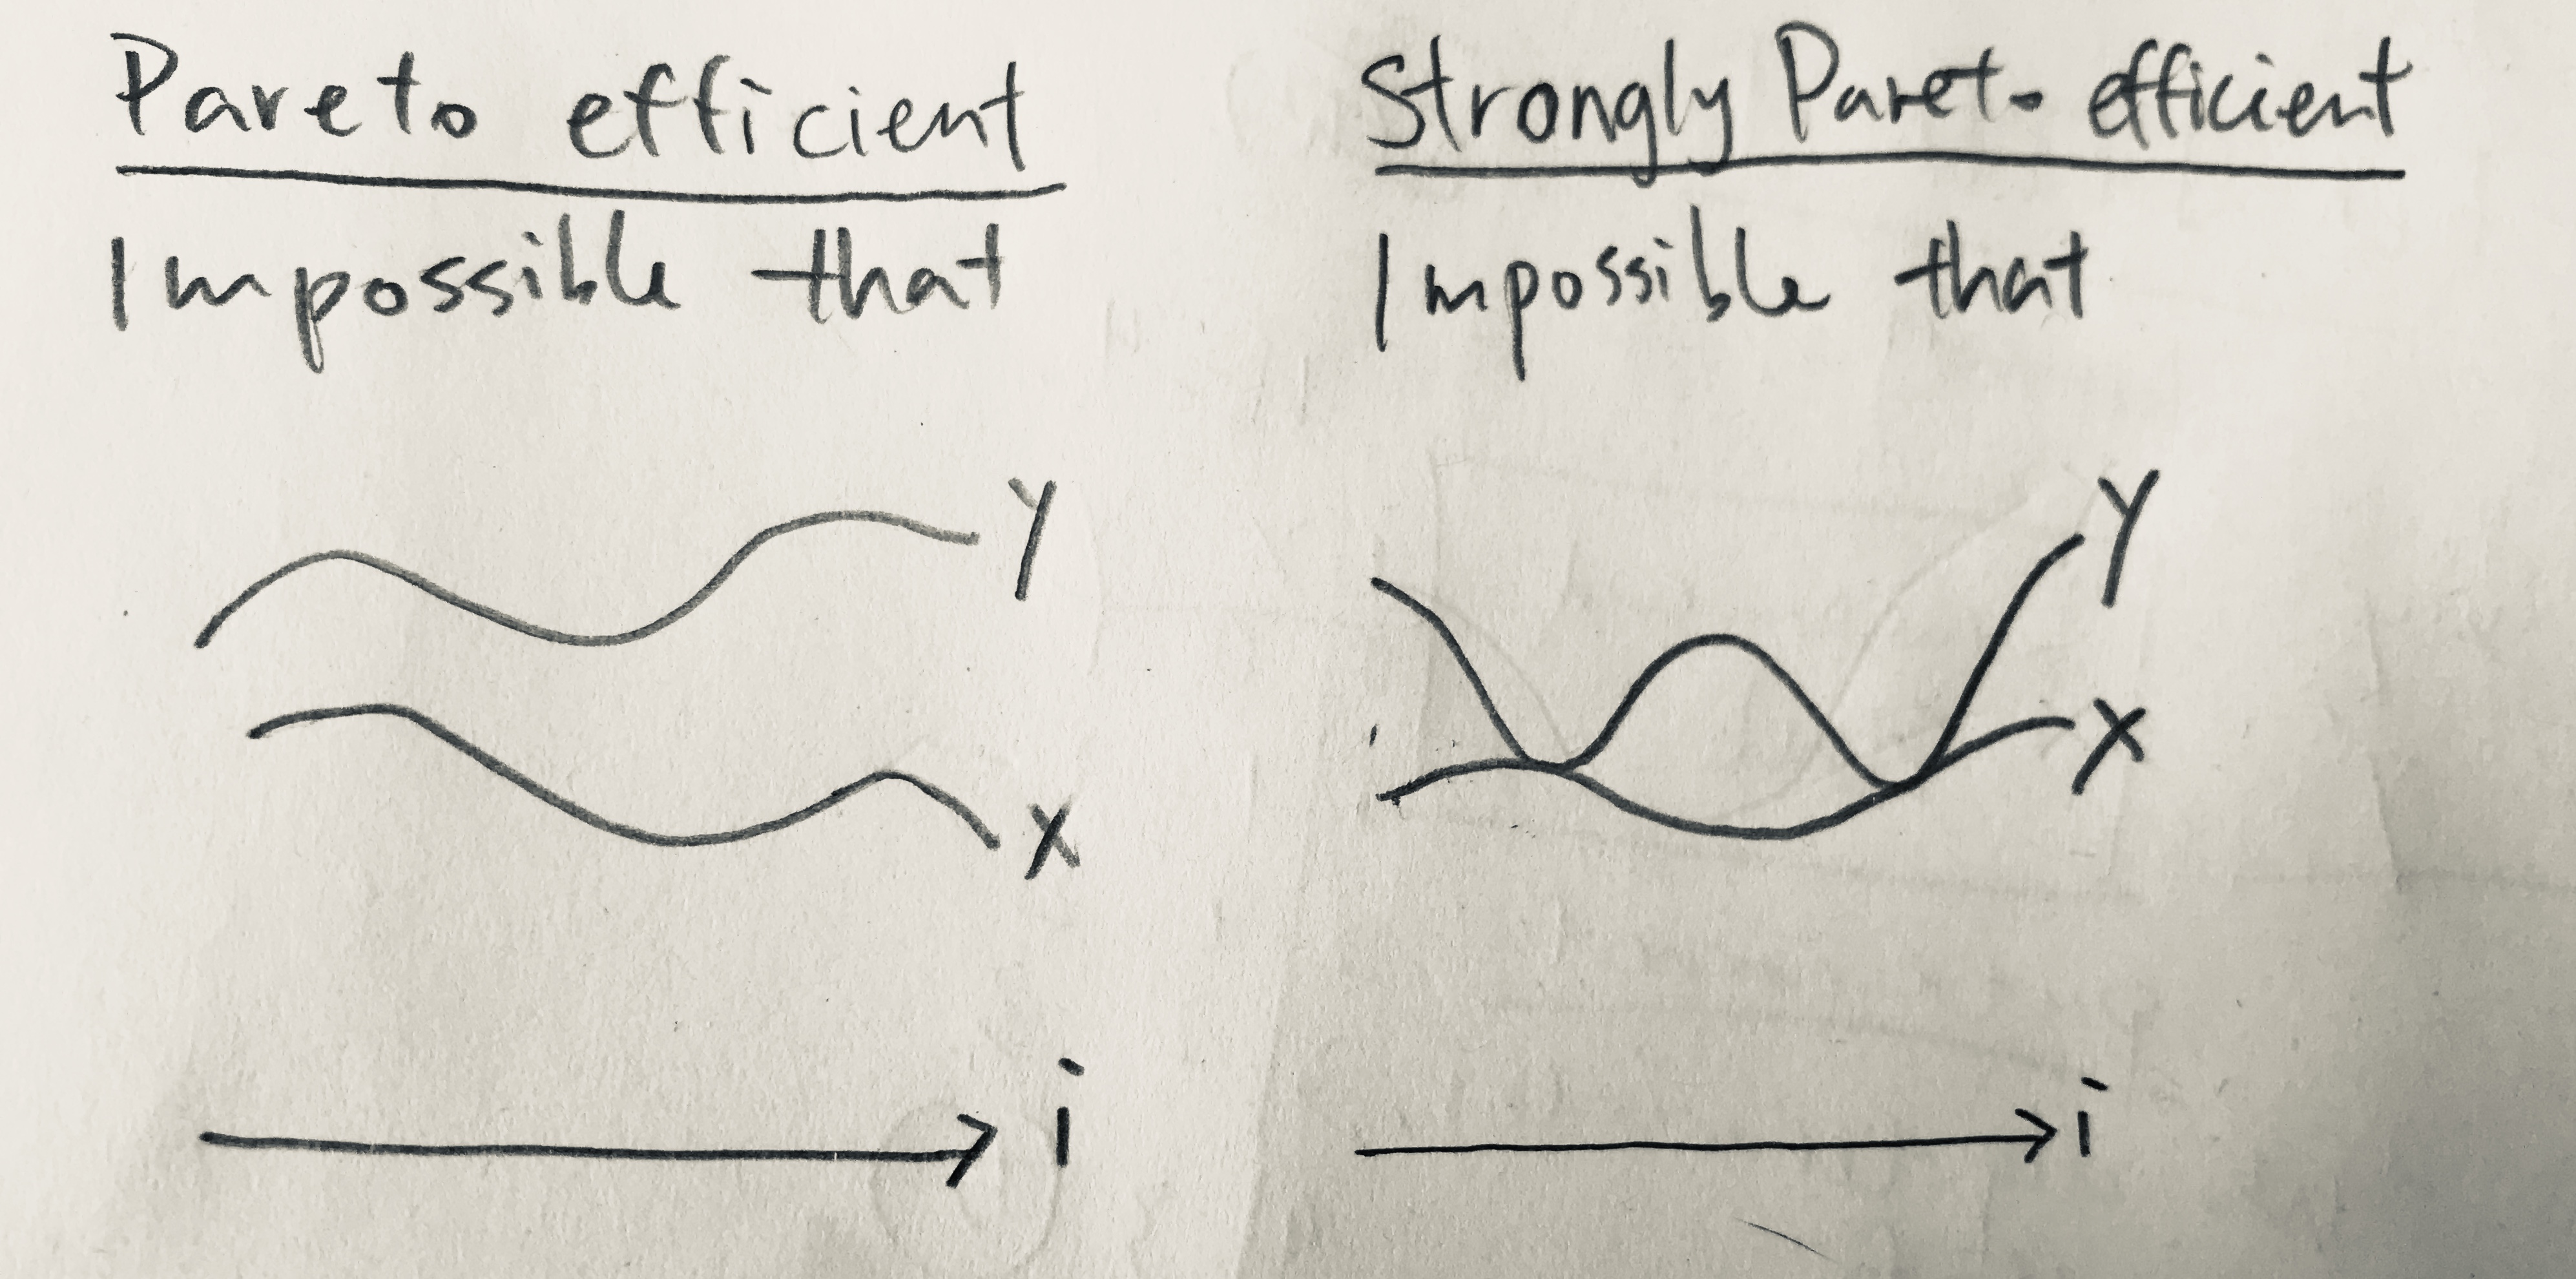 Pareto efficient
Impossible that
Y
X
i
Strongly Pareto efficient
Impossible that
Y
X
i